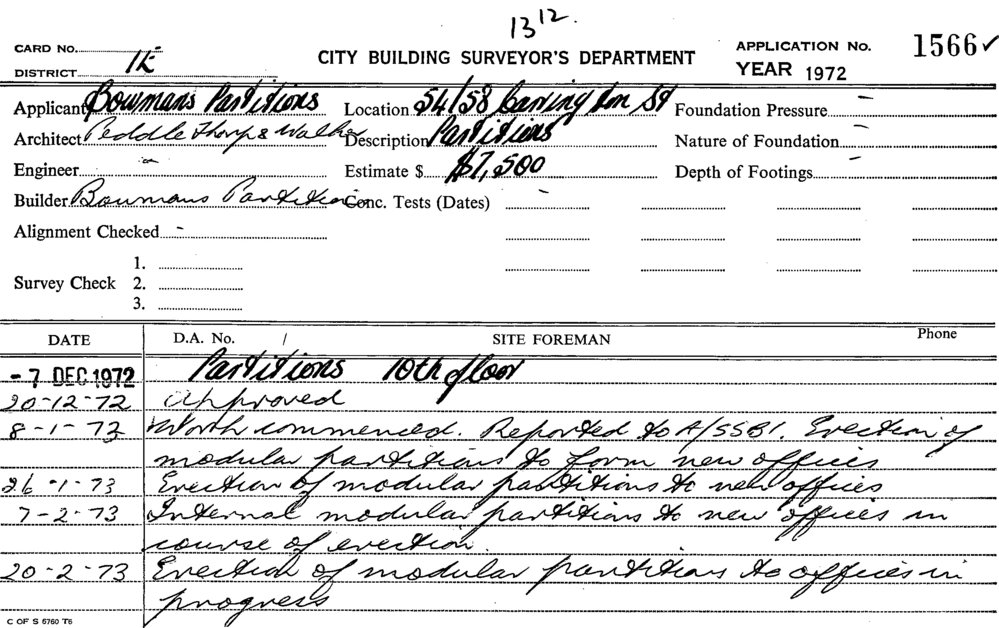 13 12.
CARD No.
CITY BUILDING SURVEYOR'S DEPARTMENT
APPLICATION No. 1566 ✓
DISTRICT
YEAR 1972
Applicant Bowmans Partitions
Location 54/58 Carrington St
Foundation Pressure -
Architect Peddle Thorp & Walker
Description Partitions
Nature of Foundation -
Engineer -
Estimate $ $7,500
Depth of Footings -
Builder Bowmans Partitions
Conc. Tests (Dates) -
Alignment Checked -
Survey Check
1.
2.
3.
DATE D.A. No. / SITE FOREMAN Phone
- 7 DEC 1972 Partitions 10th floor
20-12-72 Approved
8-1-73 Work commenced. Reported to A/SSBI. Erection of
modular partitions to form new offices
26-1-73 Erection of modular partitions to new offices
7-2-73 Internal modular partitions to new offices in
course of erection.
20-2-73 Erection of modular partitions to offices in
progress
C OF S 6760 T6